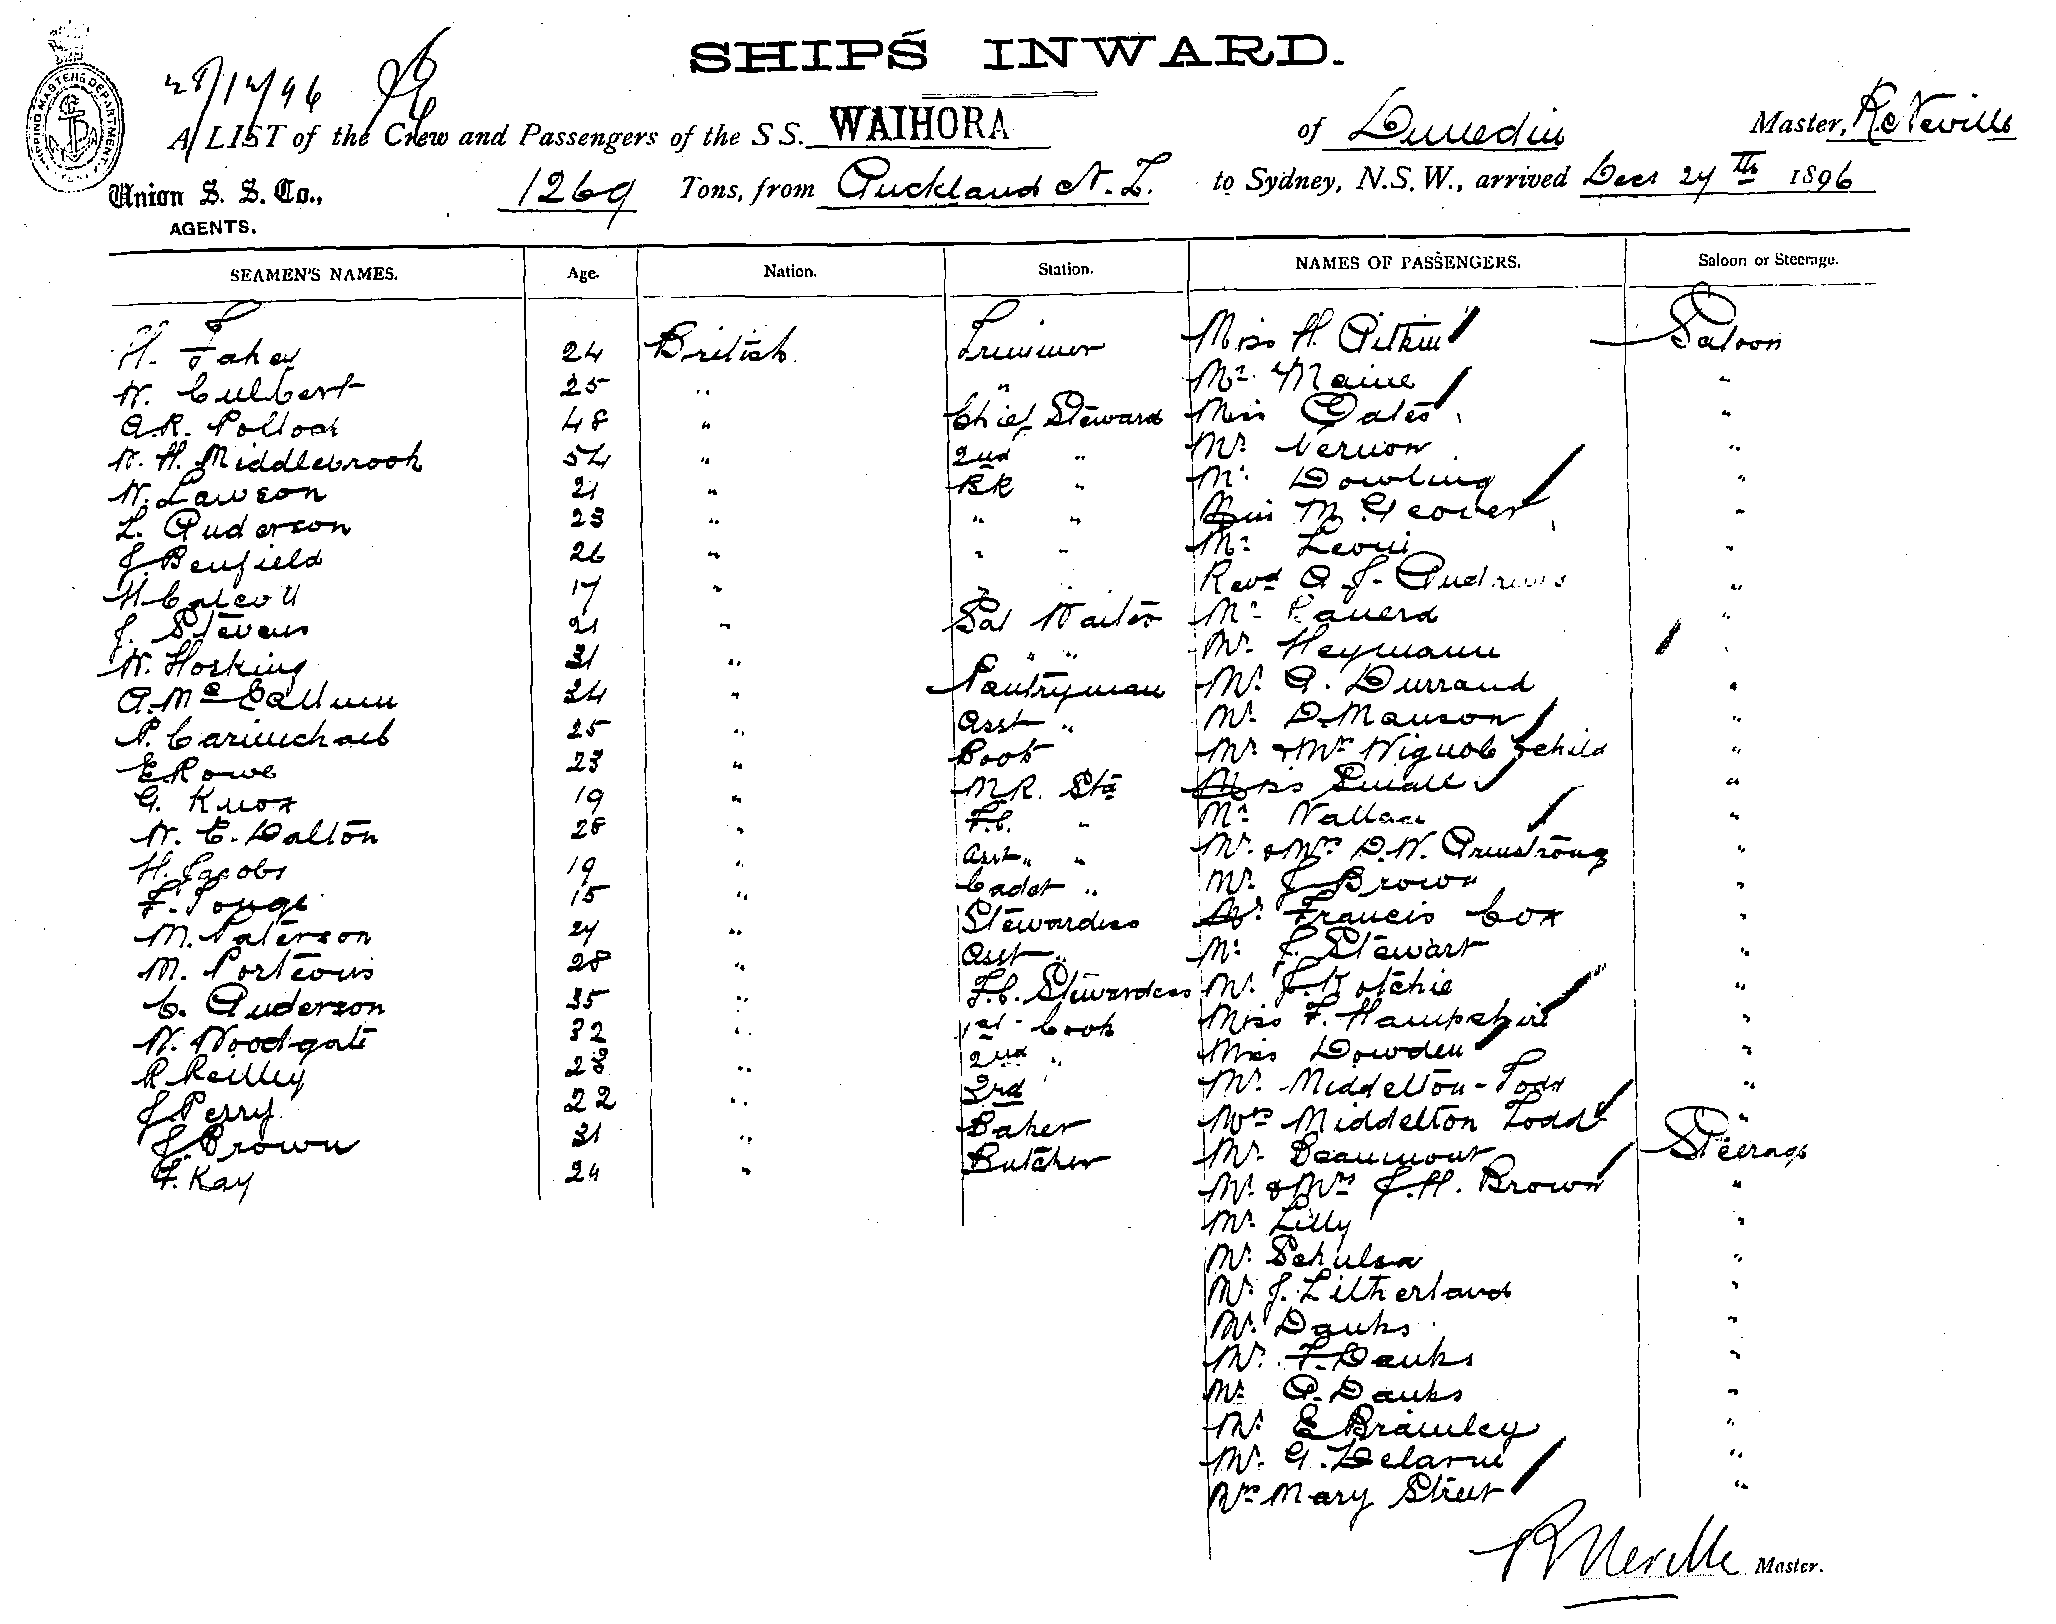 SHIPS INWARD.
28/12/96
A LIST of the Crew and Passengers of the S S. WAIHORA of Dunedin Master, R. Neville
Union S. S. Co., 1269 Tons, from Auckland N. Z. to Sydney, N.S.W., arrived 1896
AGENTS.
SEAMEN'S NAMES. Age. Nation. Station. NAMES OF PASSENGERS. Saloon or Steerage.
H. Fahey 24 British Trimmer Miss H. Aitkin Saloon
W. Culbert 25 " " Mr. Maine "
A.R. Pollock 48 " Chief Steward Miss Oates "
W. H. Middlebrook 54 " 2nd " Mr. Vernon "
W. Lawson 21 " BK " Mr. Dowling "
L. Anderson 23 " " " Miss M. "
J. Benfield 26 " " " Mr. "
H 17 " " " Revd A. J. Andrews "
J. Stevens 21 " Sal Waiter Mr. "
W. Hosking 31 " " " Mr. Heymann "
A. McCallum 24 " Pantryman Mr. A. Durrand "
P. Carmichael 25 " Asst " Mr. D. Manson "
E Rowe 23 " Mr & Mrs child "
G. Knox 19 " M.R. Std Miss Small "
W. E. Dalton 28 " F.C. " Mr. Wallace "
H. Jacobs 19 " Asst " " Mr. & Mrs D. W. Armstrong "
F. 15 " Cadet " Mr. J Brown "
M. Paterson 27 " Stewardess Mr. Francis Cox "
M. Porteous 28 " Asst " Mr. J. Stewart "
C. Anderson 35 " F.C. Stewardess Mr. J. "
W. Woodgate 32 " 1st Cook Miss F. Hampshire "
R Reilley 23 " 2nd " Miss Dowden "
J Perry 22 " 3rd Mr. Middelton-Todd "
J. Brown 31 " Baker Mrs Middelton Todd "
F. Kay 24 " Butcher Mr. Beaumont Steerage
Mr. & Mrs J. H. Brown "
Mr. Lilly "
Mr. "
Mr. J. Litherland "
Mr. Danks "
Mr. F. Danks "
Mr. A. Danks "
Mr. E Bramley "
Mr. G. Delarue "
Mrs Mary Street "
R Neville Master.